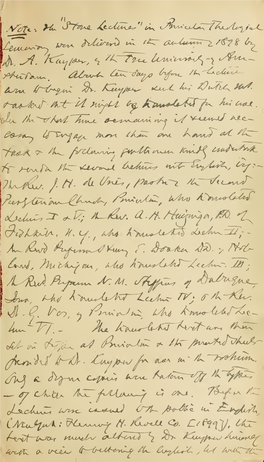 Note. The "Stone Lectures" in Princeton Theological
Seminary were delivered in the autumn of 1898 by
Dr. A. Kuyper, of the Free University of Am-
sterdam. About ten days before the lectures
were to begin Dr. Kuyper sent his Dutch MS.
and asked that it might be translated for his use.
In the short time remaining it seemed neces-
sary to engage more than one hand at the
task & the following gentlemen kindly undertook
to render the several lectures into English, viz:-
The Rev. J. H. de Vries, pastor of the Second
Presbyterian Church, Princeton, who translated
Lectures I & V; the Rev. A. H. Huizinga, PhD. of
Fishkill, N.Y., who translated Lecture II;
the Rev'd Professor Henry E. Dosker DD of Hol-
land, Michigan, who translated Lecture III;
the Rev'd Professor N. M. Steffens of Dubuque,
Iowa, who translated Lecture IV; & the Rev.
Dr. G. Vos, of Princeton, who translated Lec-
ture VI. - The translated text was then
set in type at Princeton & the printed sheets
provided to Dr. Kuyper for use in the rostrum.
Only a dozen copies were taken off the type
- of which the following is one. Before the
Lectures were issued to the public in English
(New York: Fleming H. Revell Co. [1899]), the
text was much altered by Dr. Kuyper himself
with a view to bettering the English, but with the